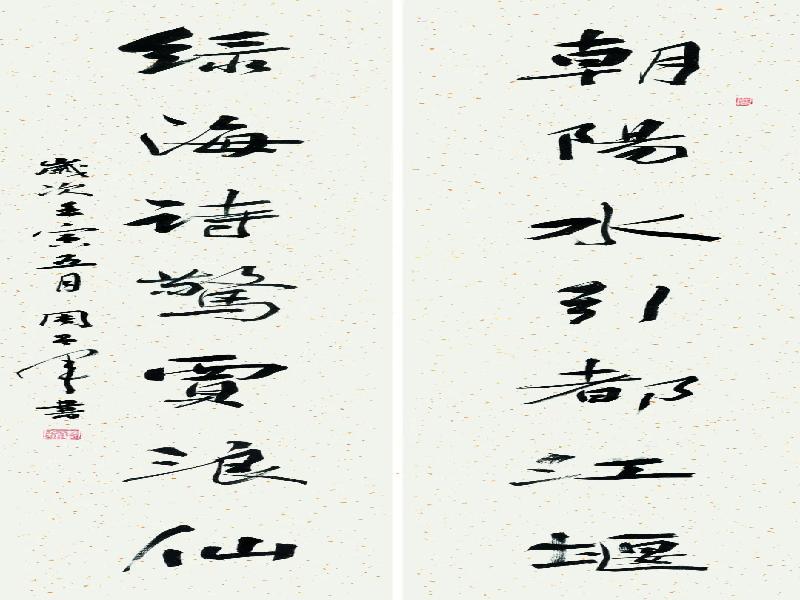 朝陽水引都江堰
绿海诗驚賈浪仙
歲次壬寅五月周子軍書